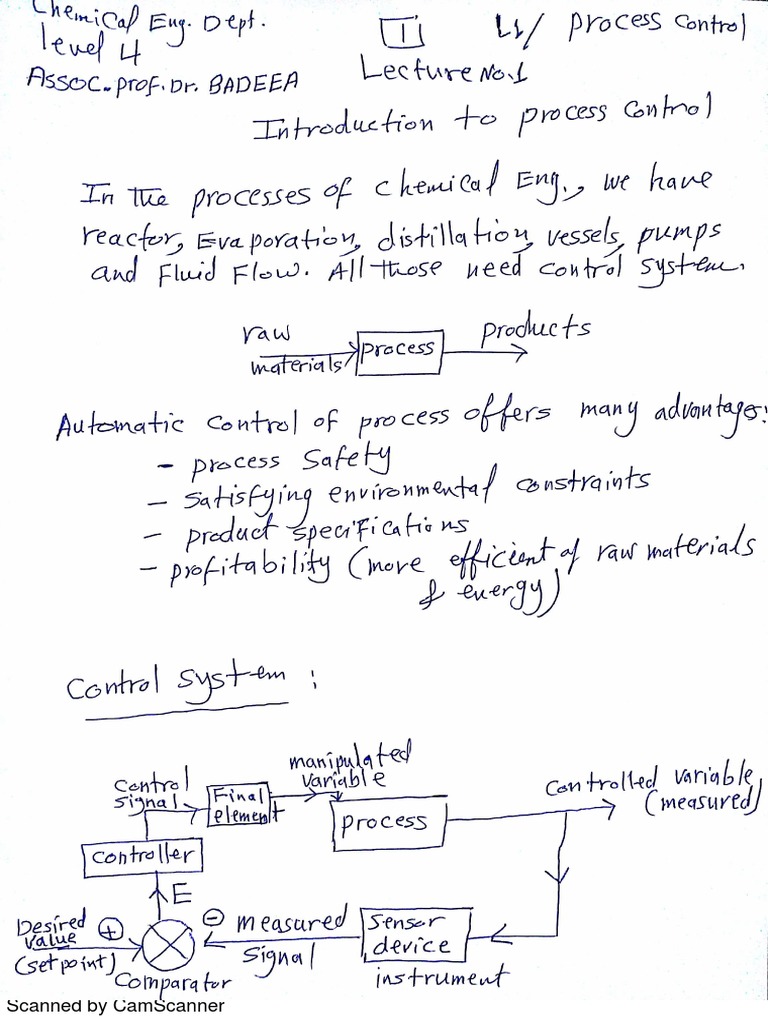 Chemical Eng. Dept.
level 4
Assoc. prof. Dr. BADEEA
1
L1/ process control
Lecture No.1
Introduction to process control
In the processes of chemical Eng., we have
reactor, Evaporation, distillation, vessels, pumps
and Fluid Flow. All those need control system.
raw
materials
process
products
Automatic control of process offers many advantages:
- process safety
- satisfying environmental constraints
- product specifications
- profitability (more efficient of raw materials
& energy)
Control system :
manipulated
variable
control
signal
Final
element
process
controlled variable
(measured)
controller
E
Desired
value
(setpoint)
+
-
measured
signal
sensor
device
Comparator
instrument
Scanned by CamScanner